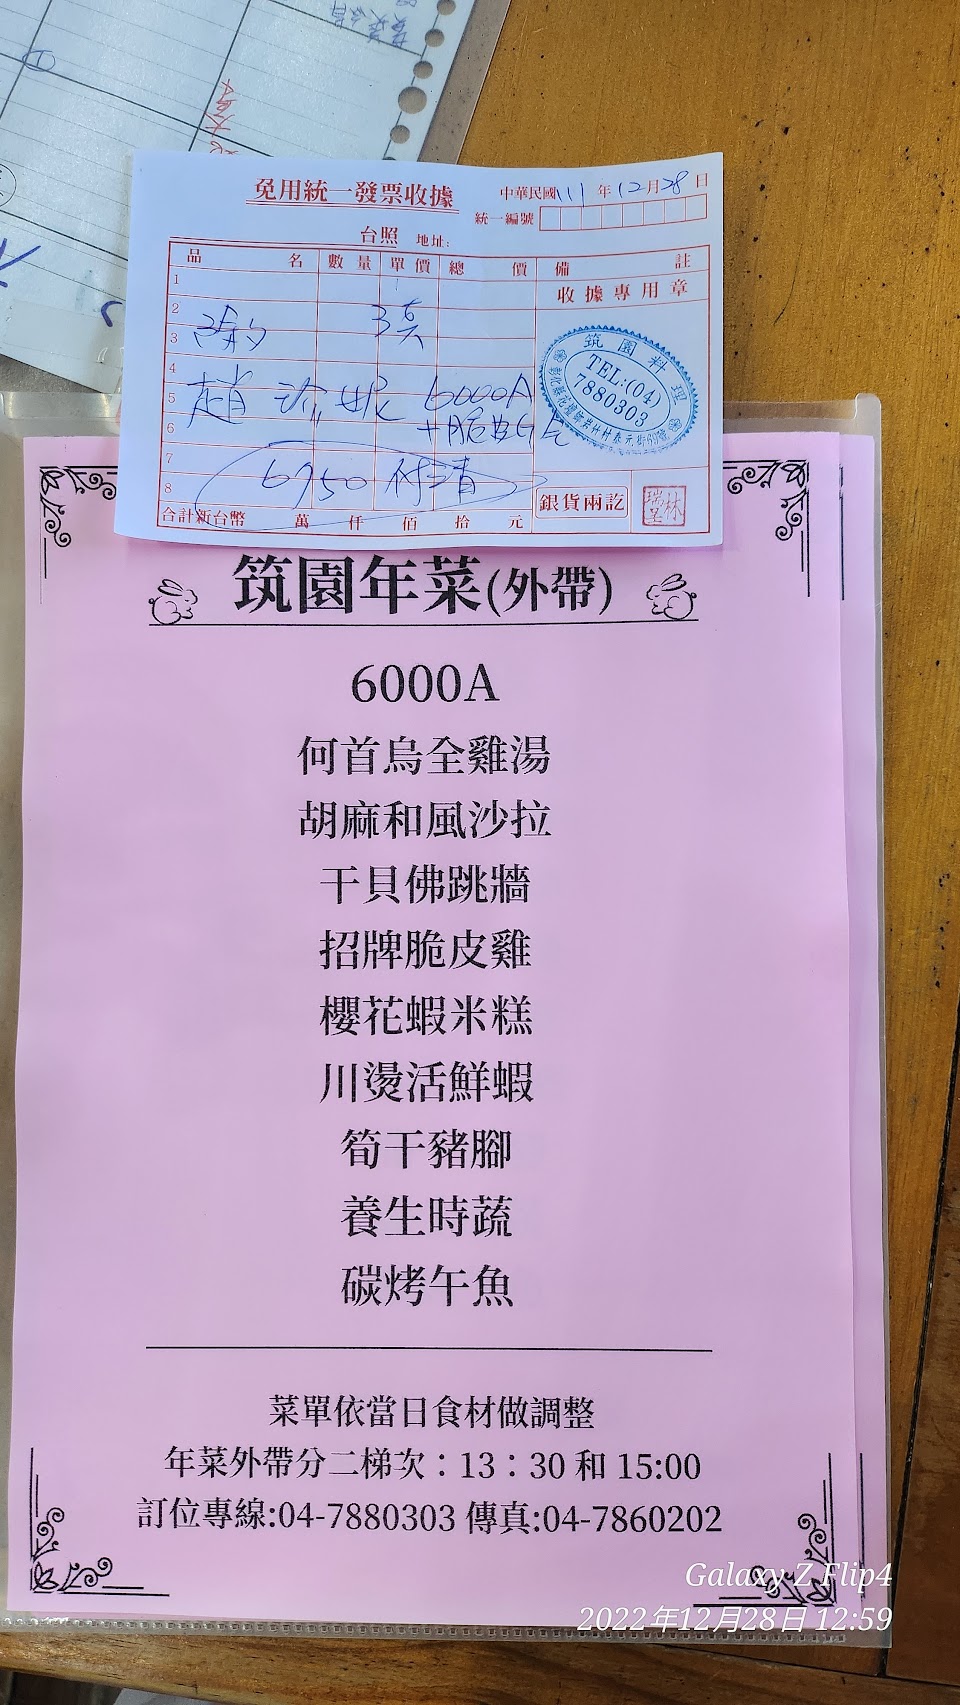 免用統一發票收據
中華民國111年12月28日
統一編號
台照 地址:
品名 數量 單價 總價 備註
收據專用章
1
2
3
4
5
6
7
8
趙 6000A
6750 付清
筑園料理
TEL:(04)
7880303
銀貨兩訖
合計新台幣 萬 仟 佰 拾 元
筑園年菜(外帶)
6000A
何首烏全雞湯
胡麻和風沙拉
干貝佛跳牆
招牌脆皮雞
櫻花蝦米糕
川燙活鮮蝦
筍干豬腳
養生時蔬
碳烤午魚
菜單依當日食材做調整
年菜外帶分二梯次：13：30 和 15:00
訂位專線:04-7880303 傳真:04-7860202
Galaxy Z Flip4
2022年12月28日 12:59